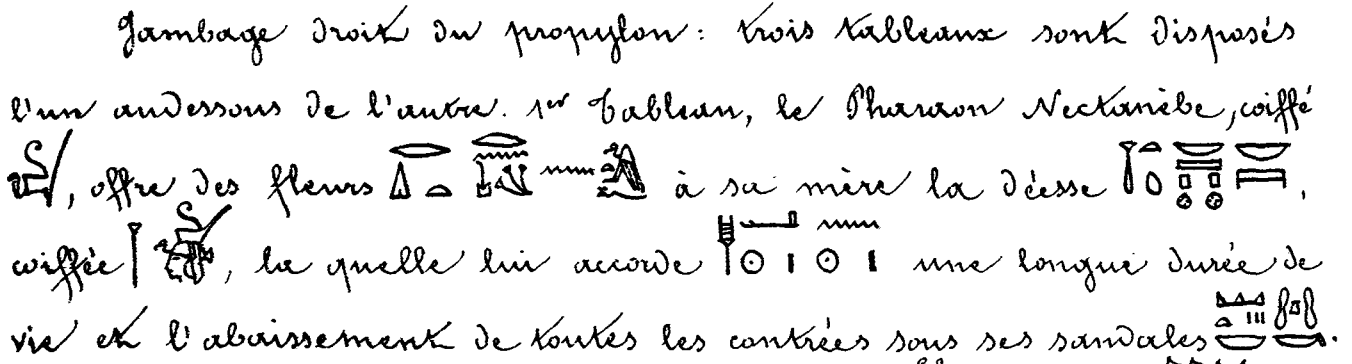 Jambage droit du propylon : trois tableaux sont disposés
l'un audessous de l'autre. 1er Tableau, le Pharaon Nectanèbe, coiffé
, offre des fleurs à sa mère la déesse ,
coiffée , la quelle lui accorde une longue durée de
vie et l'abaissement de toutes les contrées sous ses sandales .